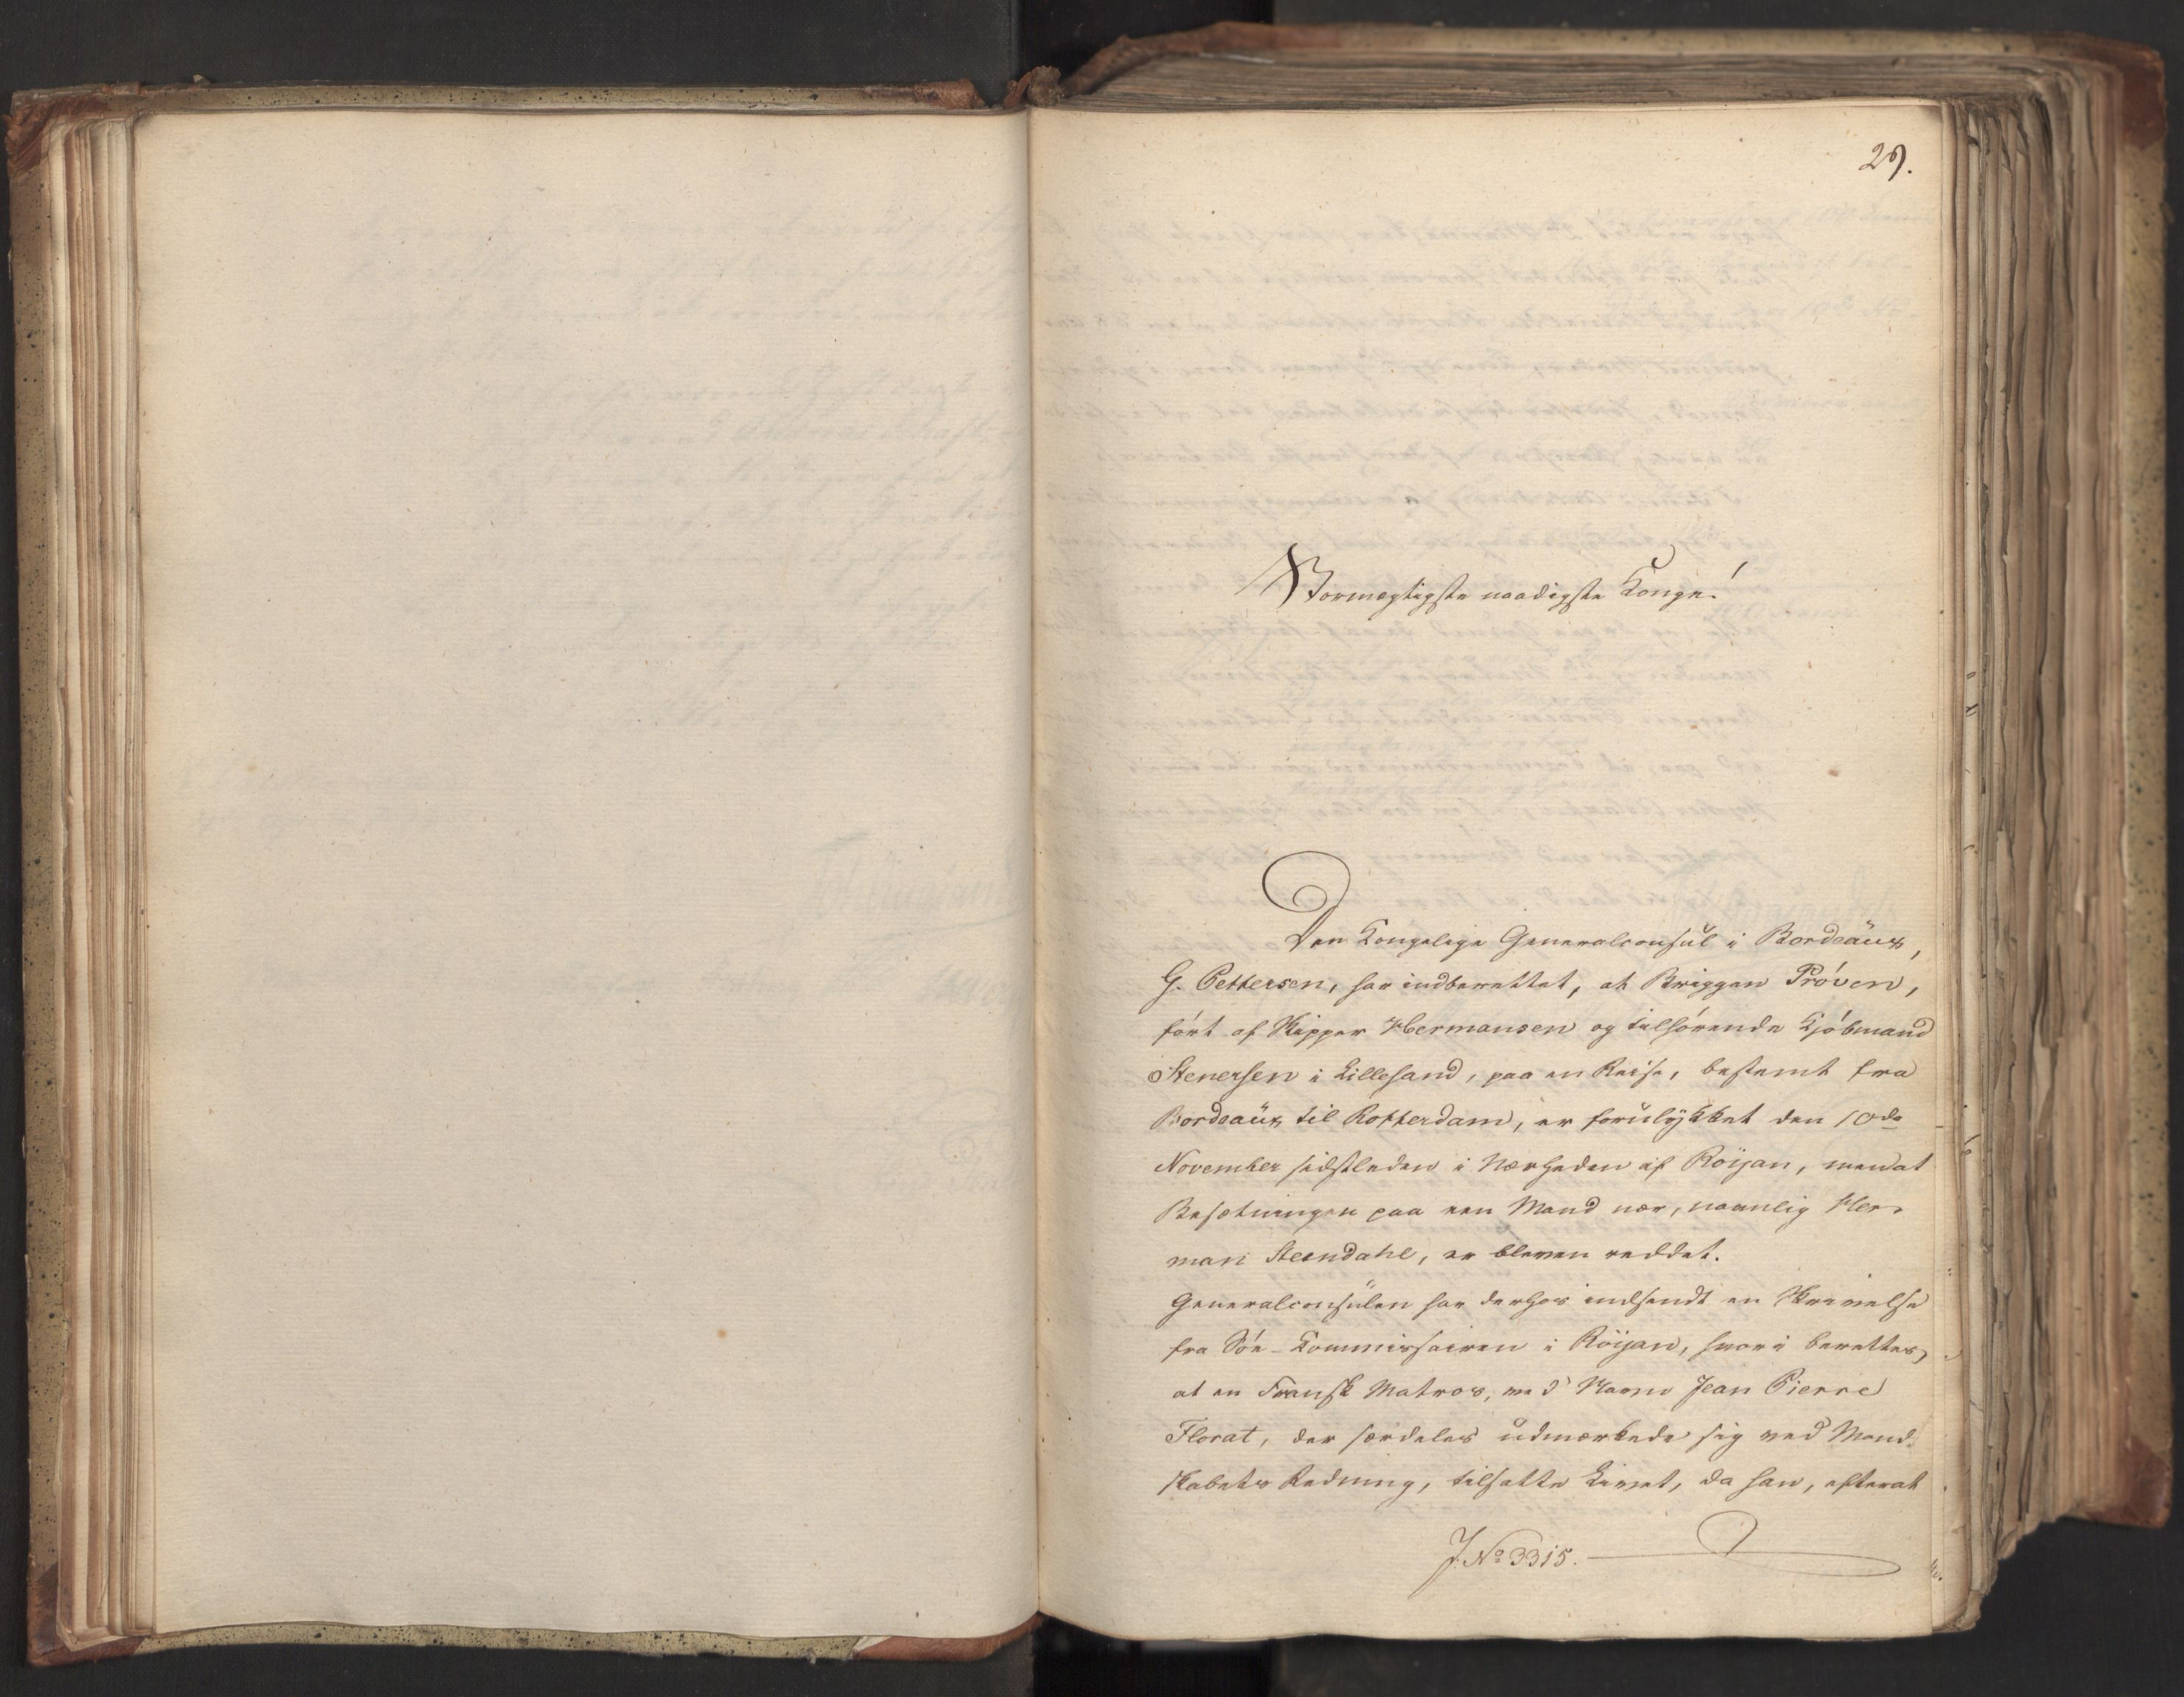 29.
Stormægtigste naadigste Konge!
Den Kongelige Generalconsul i Bordeaux,
G. Pettersen, har indberettet, at Briggen Pröven,
ført af Skipper Hermansen og tilhørende Kjøbmand
Stenersen i Lillesand, paa en Reise, bestemt fra
Bordeaux til Rotterdam, er forulykket den 10de
November sidstleden i Nærheden af Röyan, men at
Besætningen paa een Mand nær, navnlig Her-
man Steendahl, er bleven reddet.
Generalconsulen har derhos indsendt en Skrivelse
fra Söe-Kommissairen i Röyan, hvori berettes,
at en Fransk Matros, med Navn Jean Pierre
Florat, der særdeles udmærkede sig ved Mand-
skabets Redning, tilsatte Livet, da han, efterat
J. No 3315.